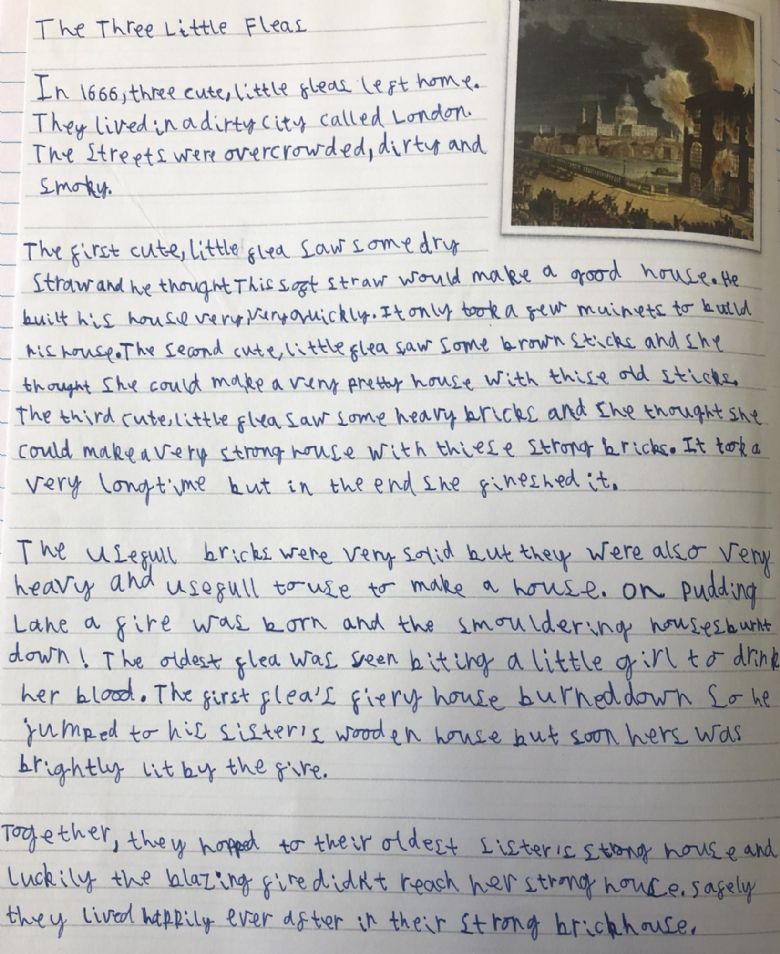 The Three Little Fleas
In 1666, three cute, little fleas left home.
They lived in a dirty city called London.
The streets were overcrowded, dirty and
smoky.
The first cute, little flea saw some dry
straw and he thought This soft straw would make a good house. He
built his house very, very quickly. It only took a few muinets to build
his house. The second cute, little flea saw some brown sticks and she
thought she could make a very pretty house with thise old sticks.
The third cute, little flea saw some heavy bricks and she thought she
could make a very strong house with thiese strong bricks. It took a
very long time but in the end she fineshed it.
The usefull bricks were very solid but they were also very
heavy and usefull to use to make a house. On pudding
Lane a fire was born and the smouldering houses burnt
down! The oldest flea was seen biting a little girl to drink
her blood. The first flea's fiery house burned down so he
jumped to his sister's wooden house but soon hers was
brightly lit by the fire.
Together, they hopped to their oldest sister's strong house and
luckily the blazing fire didn't reach her strong house. Safely
they lived happily ever after in their strong brickhouse.